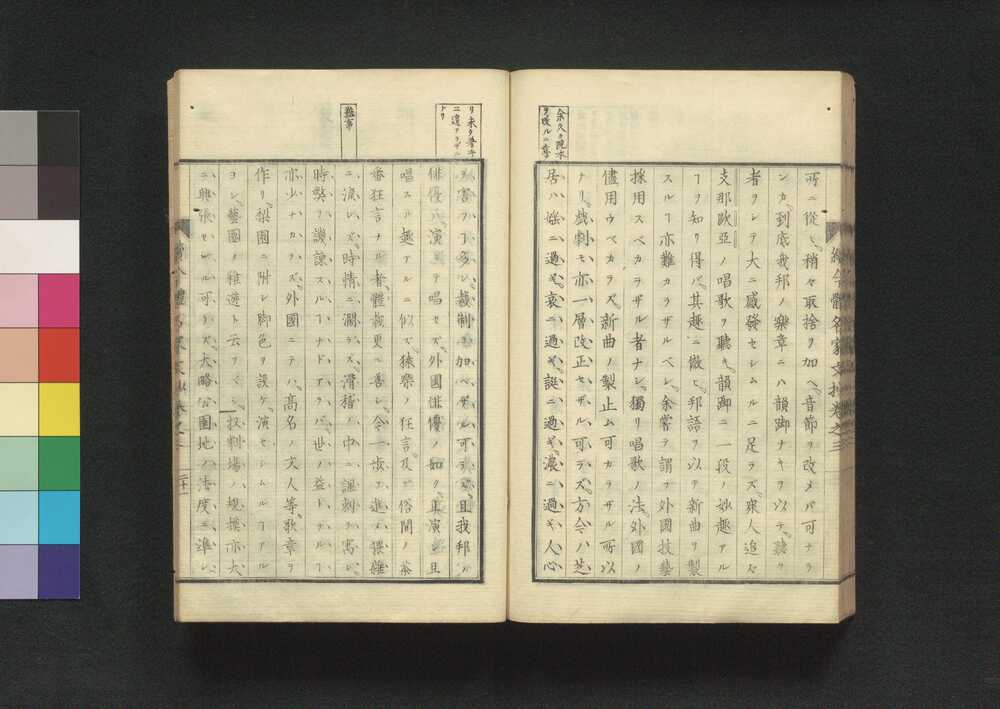 余久ク院本
所ニ從ヒ、稍々取捨ヲ加ヘ、音節ヲ改メバ可ナラ
ンカ、到底我邦ノ樂章ニハ韻脚ナキヲ以テ、聽ク
者ヲシテ大ニ感發セシムルニ足ラズ、衆人追々
支那歐亞ノ唱歌ヲ聽キ、韻脚ニ一段ノ妙趣アル
ヿヲ知リ得バ、其趣ニ倣ヒ、邦語ヲ以テ新曲ヲ製
スルヿ亦難カラザルベシ、余嘗テ謂フ、外國技藝
採用スベカラザル者ナシ、獨リ唱歌ノ法、外國ノ
儘用ウベカラズ、新曲ノ製止ム可カラザル所以
ナリ、戲劇モ亦一層改正セザル可ラズ、方今ハ芝
居ハ婬ニ過ギ、哀ニ過ギ、誕ニ過ギ、濃ニ過ギ、人心
リ未タ考キ
ニ遑アラザ
ヲ害スルヿ多シ、裁制ヲ加ヘザル可ラズ、且我邦ノ
俳優ハ、演ジテ唱セズ、外國俳優ノ如ク、且演且
唱スル趣アルニ似ズ、猿樂ノ狂言及ビ俗間ノ茶
番狂言ナル者、體裁更ニ善シ、今一歩ヲ進メ、猥雜
ニ流レズ、時情ニ濶ラズ、滑稽ノ中ニ諷刺ヲ寓シ、
時弊ヲ譏諫スルヿナドアラバ、世ノ益トナルヿ
亦少ナカラズ、外國ニテハ、高名ノ文人等、歌章ヲ
作リ、梨園ニ附シ脚色ヲ設ケ、演セシムルヿアル
ヨシ、藝園ノ雅遊ト云フベシ、技制場ノ規摸亦大
ニ興張セザル可ラズ、大略公園地ノ法度ニ準シ、